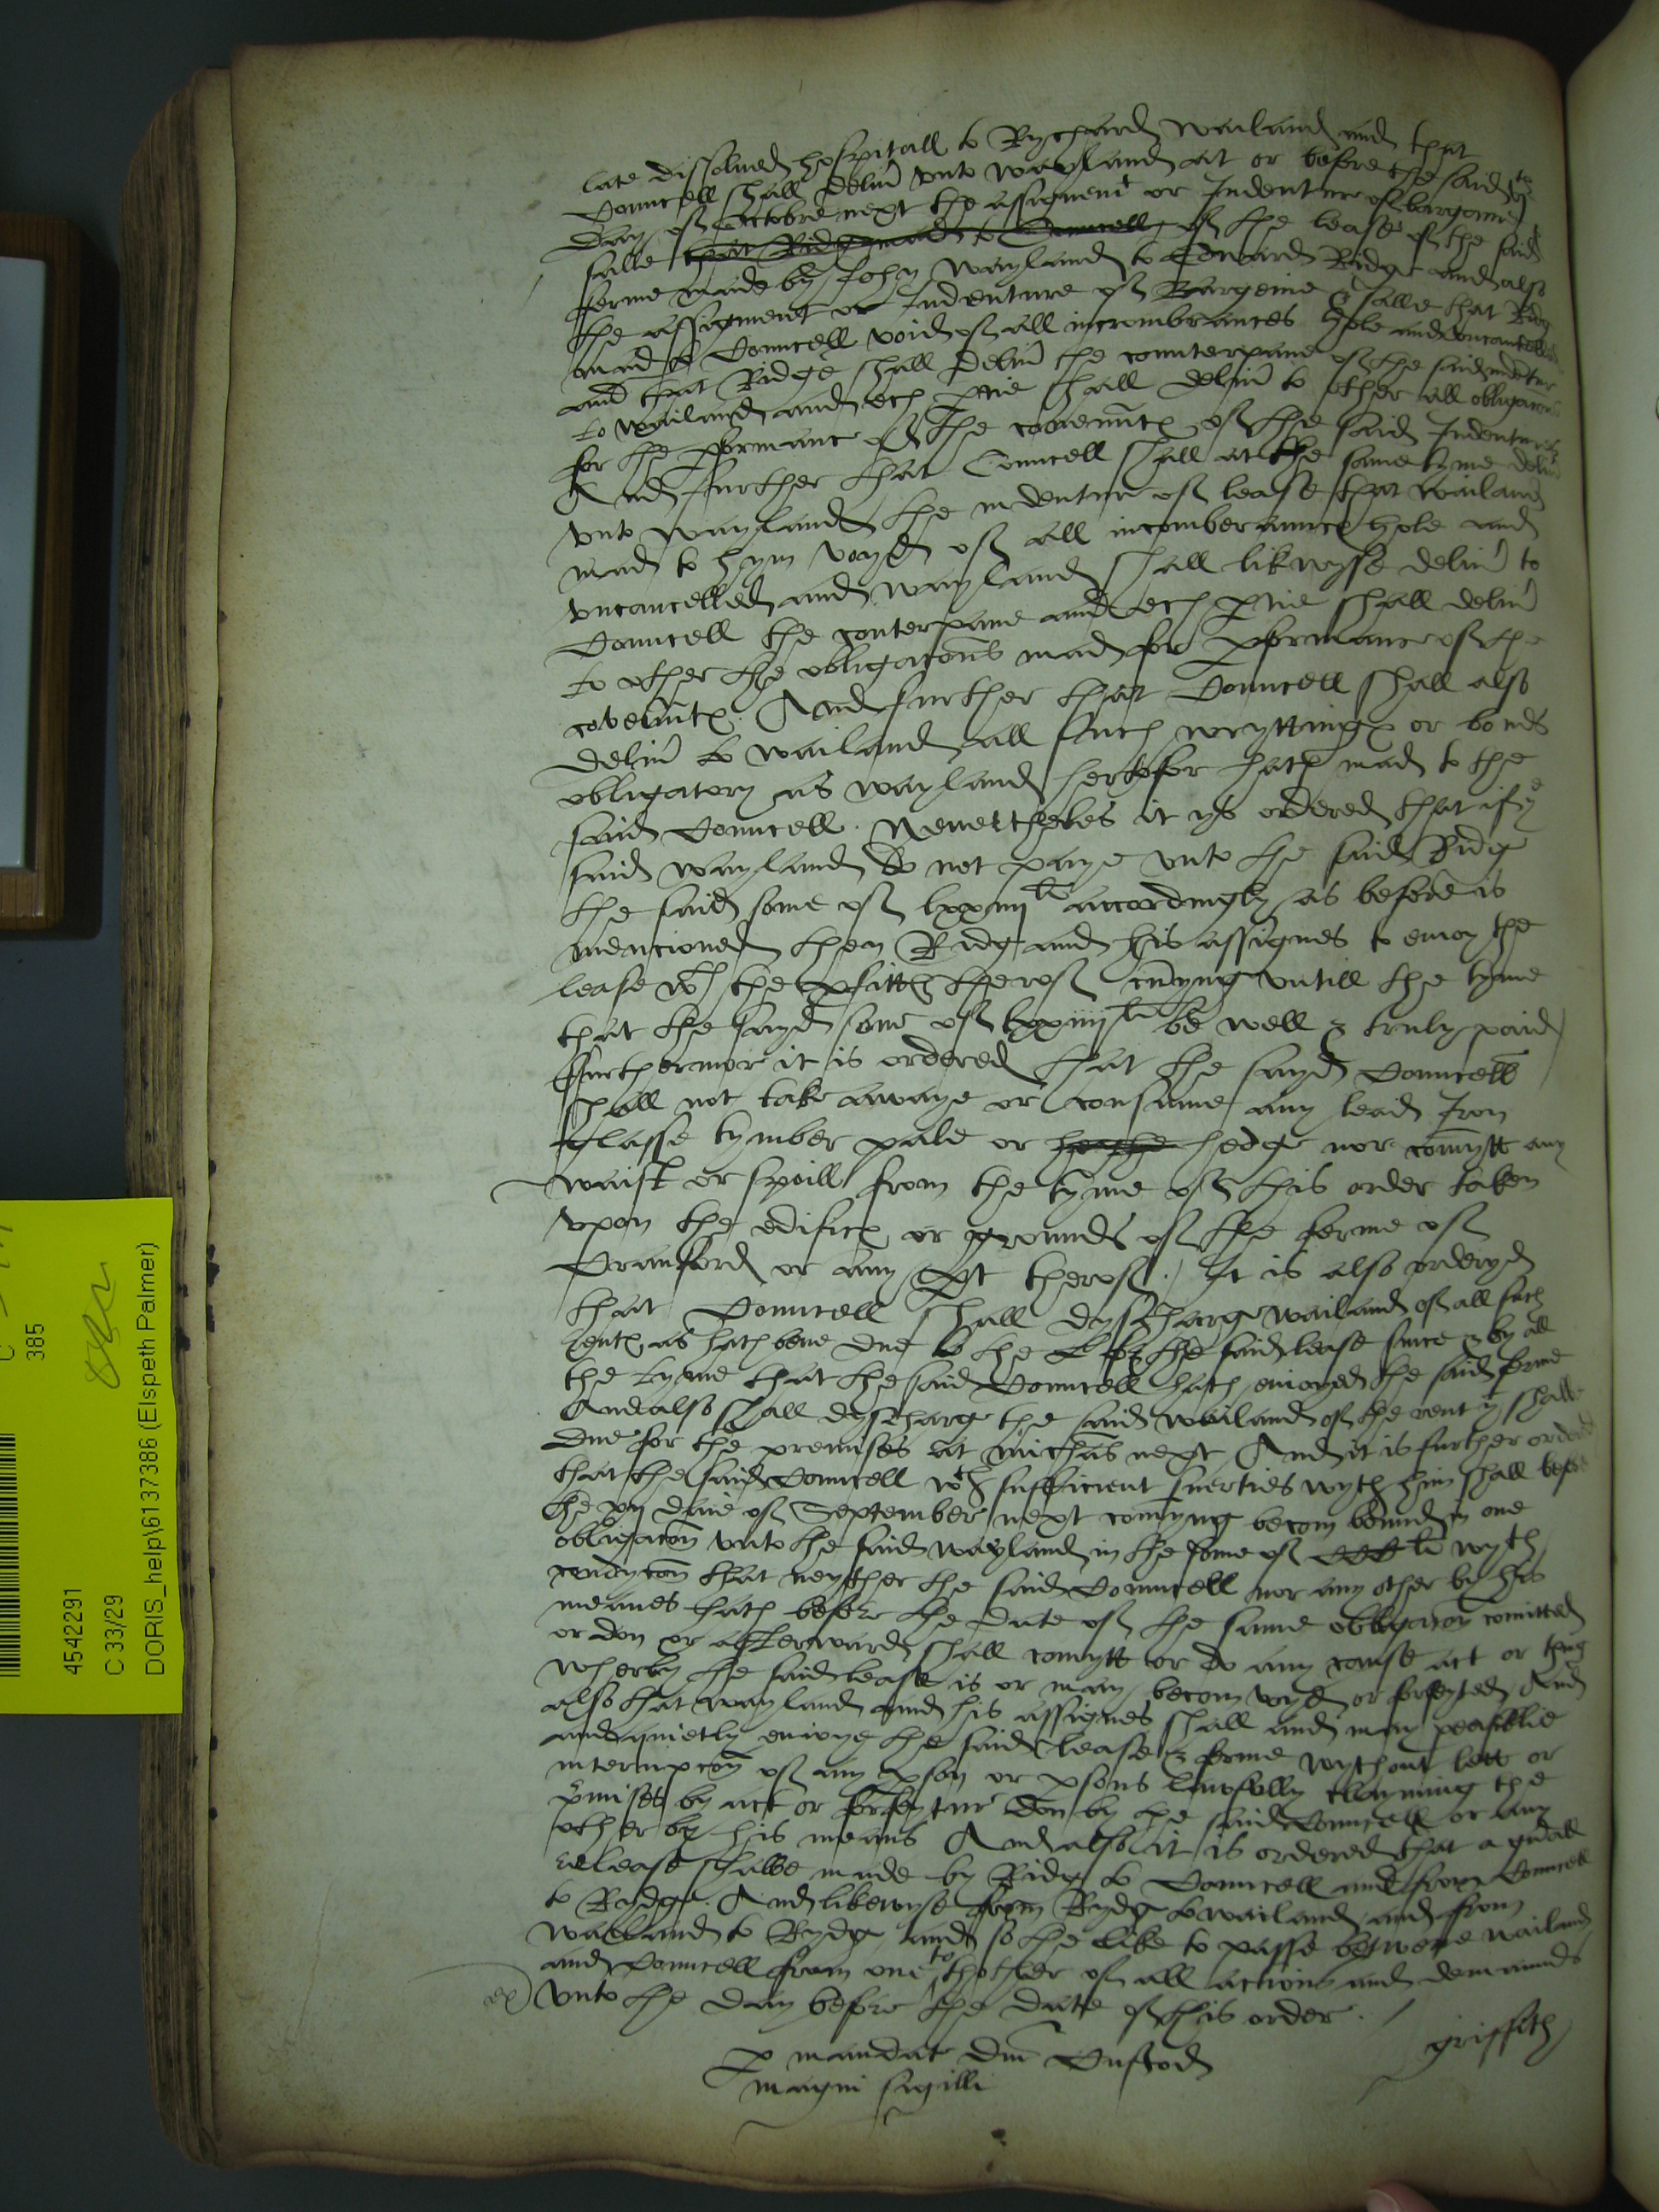 late dissolued hospitall to Rychard wailand and that
Conncell shall deliu vnto wayland at or before the said
day of Octobre next the assignemt or Indenture of bargaine
salle that Ridg mad to Conncell of the lease of the said
ferme made by John wayland to Edward Ridge and also
the assigment or Indenture of Bargeine & Salle that Ridg
mad to Conncell void of all incombrances hole and vncancelled
and that Ridge shall deliu the counterpane of the said indetur
to wailand and ech ptie shall deliu to other all obligacons
for the pformanc of the covenntes of the said Indentures
And further that Conncell shall at the same tyme deliu
vnto wayland the indentur of lease that wailand
mad to hym voyd of all incomberannce hole and
vncancelled and wayland shall likwyse deliu to
Conncell the conterpane and ech ptie shall deliu
to other the obligacons mad for pformanc of the
covenntes. And further that Conncell shall also
deliu to wailand all such wryttinges or bonds
obligatory as wayland hertofor hath mad to the
said Conncell. Neuertheles it ys ordered that if ye
said wayland do not paye vnto the said Ridge
the said some of lxxiiij li accordingly as before is
mencioned then Ridg and his assignes to enioy the
lease wth the pfittes therof cmyng vntill the tyme
that the sayd some of lxxiiij li be well & truly paid
Furthermor it is ordered that the sayd Conncell
shall not take awaye or consume any lead Iron
Glasse tymber pale or hegghe hedge nor comytt any
waist or spoill from the tyme of this order taken
vpon the edifices or grounds of the ferme of
Cranford or any pt therof. It is also orderyd
that Conncell shall dyscharge wailand of all such
rentes as hath bene due to the by the said lease since & by all
the tyme that the said Conncell hath enioyed the said ferme
And also shall dyscharg the said wailand of the rent yt shalbe
due for the premises at michas next, And it is further ordered
that the said Conncell wth sufficient suerties wyth him shall before
the xij daie of September next comyng becom bound in one
obligacon vnto the said wayland in the some of CCC li wyth
condycon that neyther the said Conncell nor any other by his
meanes hath before the date of the same obligacon comitted
or don or afterward shall comytt or do any cause act or thing
wherby the said lease is or may becom voyd or forfeyted And
also that wayland and his assignes shall and may peasiblie
and quietly enioye the said lease & ferme wythout lett or
interrupcon of any pson or psons lawfully clayming the
pmises by act or forfeytur don by the said Conncell or any
other by his means And also it is ordered that a gnall
release shalbe made by Ridg to Conncell and from Conncell
to Rydge. And likewyse from Rydg to wailand and from
wailand to Rydg and so the like to passe betwene wailand
and Conncell from one to thother of all actions and demaunds
vnto the day before the date of this order.
griffith
p mandat dni Custod
magni sigilli
385
4542291
C 33/29
DORIS_help\6137386 (Elspeth Palmer)